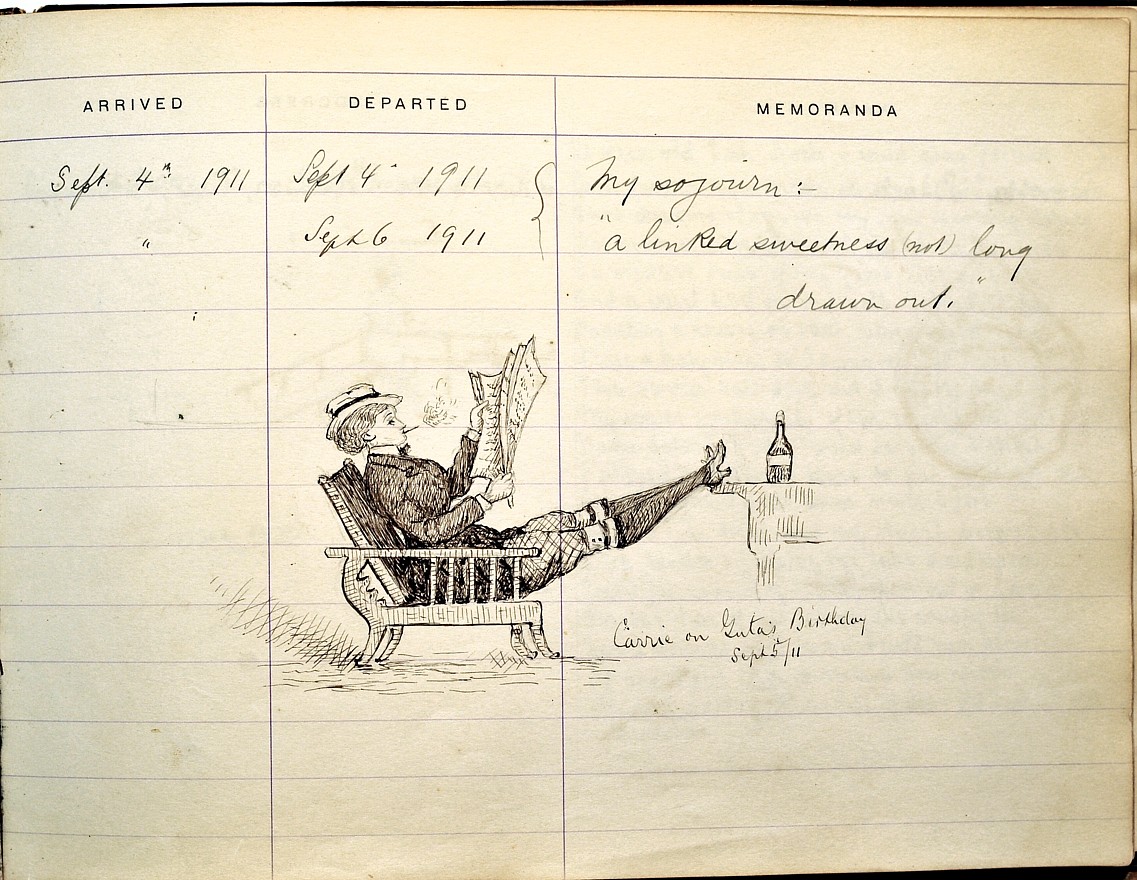 ARRIVED DEPARTED MEMORANDA
Sept. 4th 1911 Sept 4 1911 My sojourn :-
" Sept 6 1911 "a linked sweetness (not) long
drawn out."
Carrie on Guta's Birthday
Sept 5/11